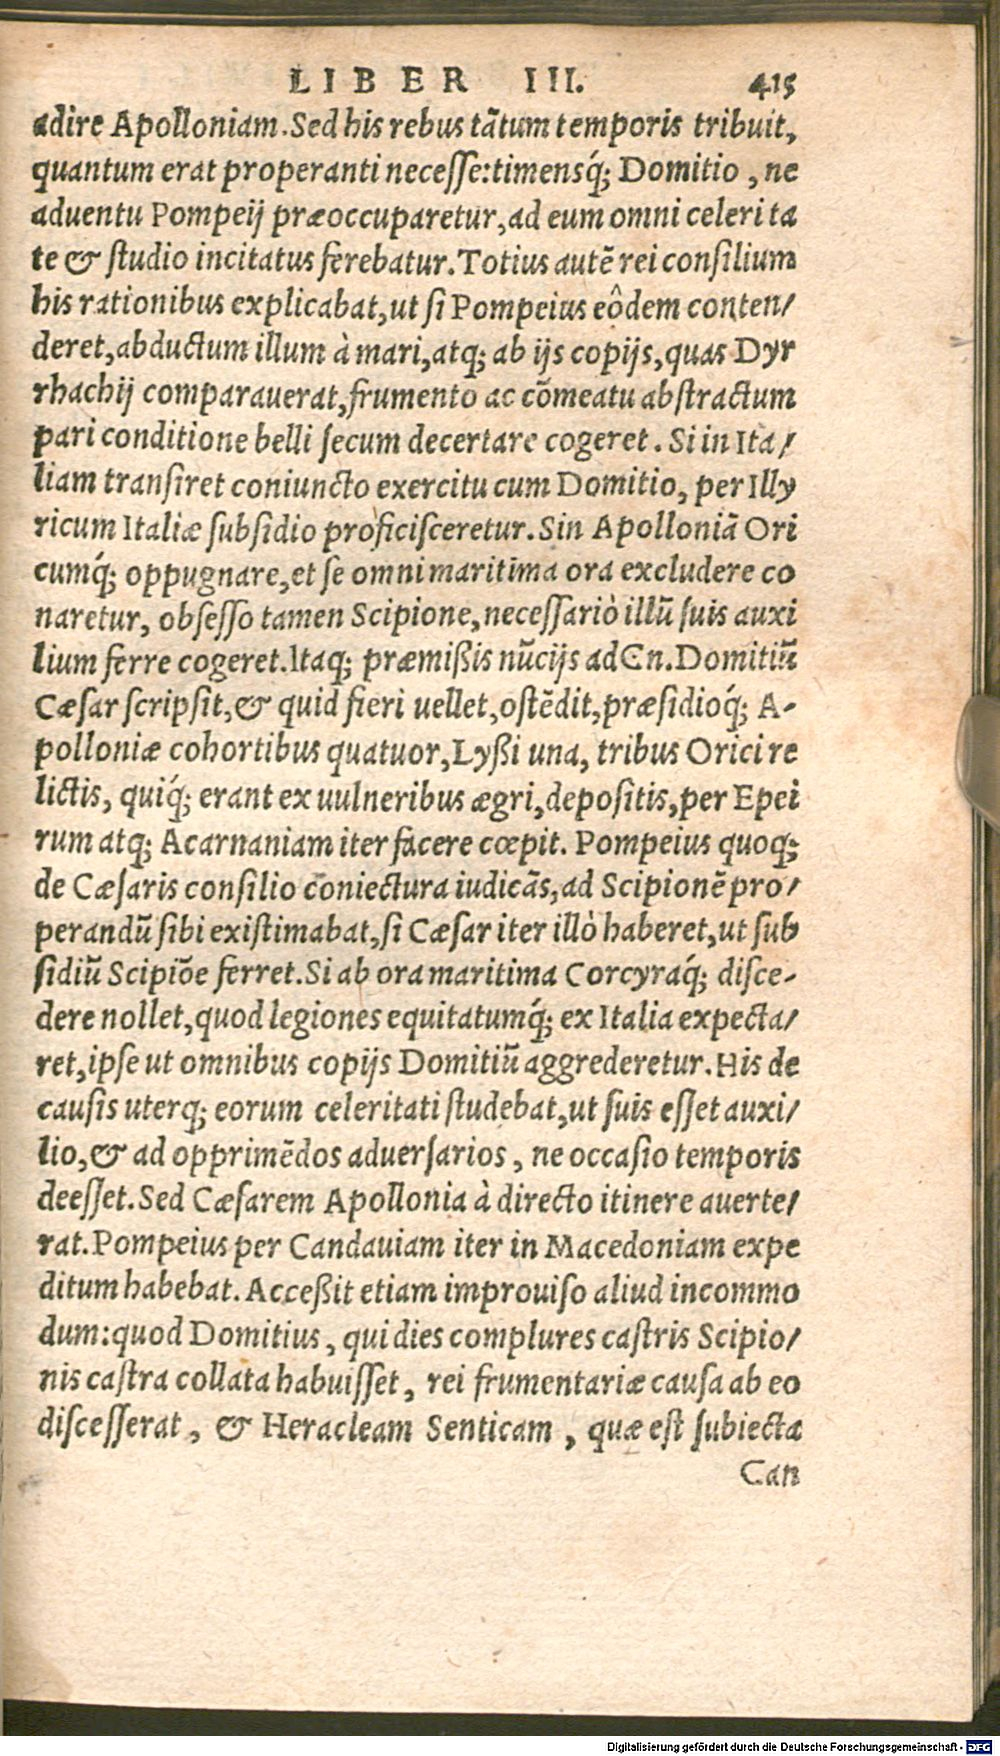 LIBER III. 415
adire Apolloniam. Sed his rebus tātum temporis tribuit,
quantum erat properanti necesse: timensq́; Domitio, ne
aduentu Pompeij præoccuparetur, ad eum omni celerita
te & studio incitatus ferebatur. Totius autē rei consilium
his rationibus explicabat, ut si Pompeius eôdem conten/
deret, abductum illum à mari, atq; ab ijs copijs, quas Dyr
rhachij comparauerat, frumento ac cōmeatu abstractum
pari conditione belli secum decertare cogeret. Si in Ita/
liam transiret coniuncto exercitu cum Domitio, per Illy
ricum Italiæ subsidio proficisceretur. Sin Apolloniā Ori
cumq́; oppugnare, et se omni maritima ora excludere co
naretur, obsesso tamen Scipione, necessariò illū suis auxi
lium ferre cogeret. Itaq; præmißis nūcijs ad Cn. Domitiū
Cæsar scripsit, & quid fieri uellet, ostēdit, præsidioq́; A-
polloniæ cohortibus quatuor, Lyßi una, tribus Orici re
lictis, quiq́; erant ex uulneribus ægri, depositis, per Epei
rum atq; Acarnaniam iter facere cœpit. Pompeius quoq;
de Cæsaris consilio coniectura iudicās, ad Scipionē pro/
perandū sibi existimabat, si Cæsar iter illò haberet, ut sub
sidiū Scipiōe ferret. Si ab ora maritima Corcyraq́; disce-
dere nollet, quod legiones equitatumq́; ex Italia expecta/
ret, ipse ut omnibus copijs Domitiū aggrederetur. His de
causis uterq; eorum celeritati studebat, ut suis esset auxi/
lio, & ad opprimēdos aduersarios, ne occasio temporis
deesset. Sed Cæsarem Apollonia à directo itinere auerte/
rat. Pompeius per Candauiam iter in Macedoniam expe
ditum habebat. Acceßit etiam improuiso aliud incommo
dum: quod Domitius, qui dies complures castris Scipio/
nis castra collata habuisset, rei frumentariæ causa ab eo
discesserat, & Heracleam Senticam, quæ est subiecta
Can
Digitalisierung gefördert durch die Deutsche Forschungsgemeinschaft - DFG